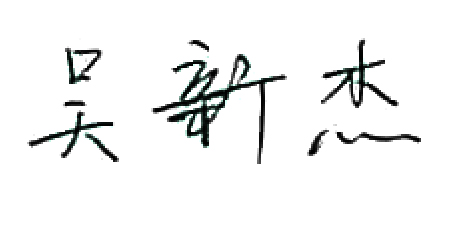 吴新杰